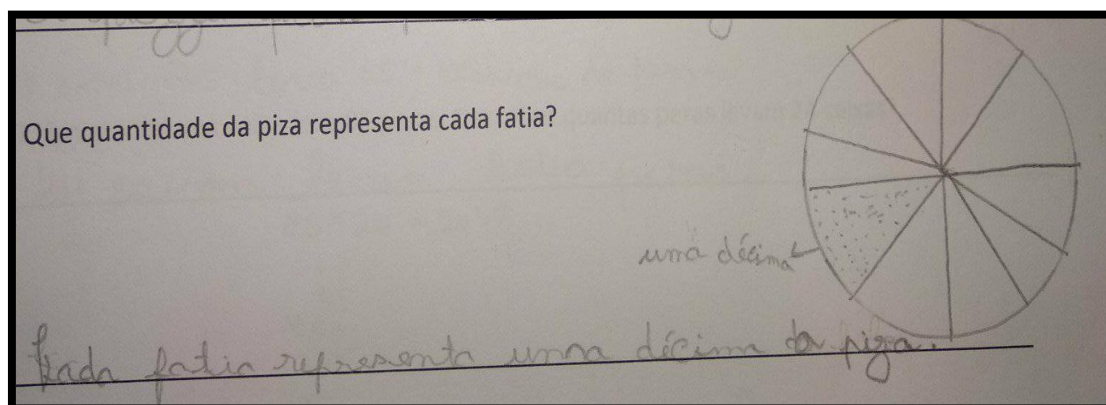 Que quantidade da piza representa cada fatia?
uma décima
Cada fatia representa uma décima da piza.